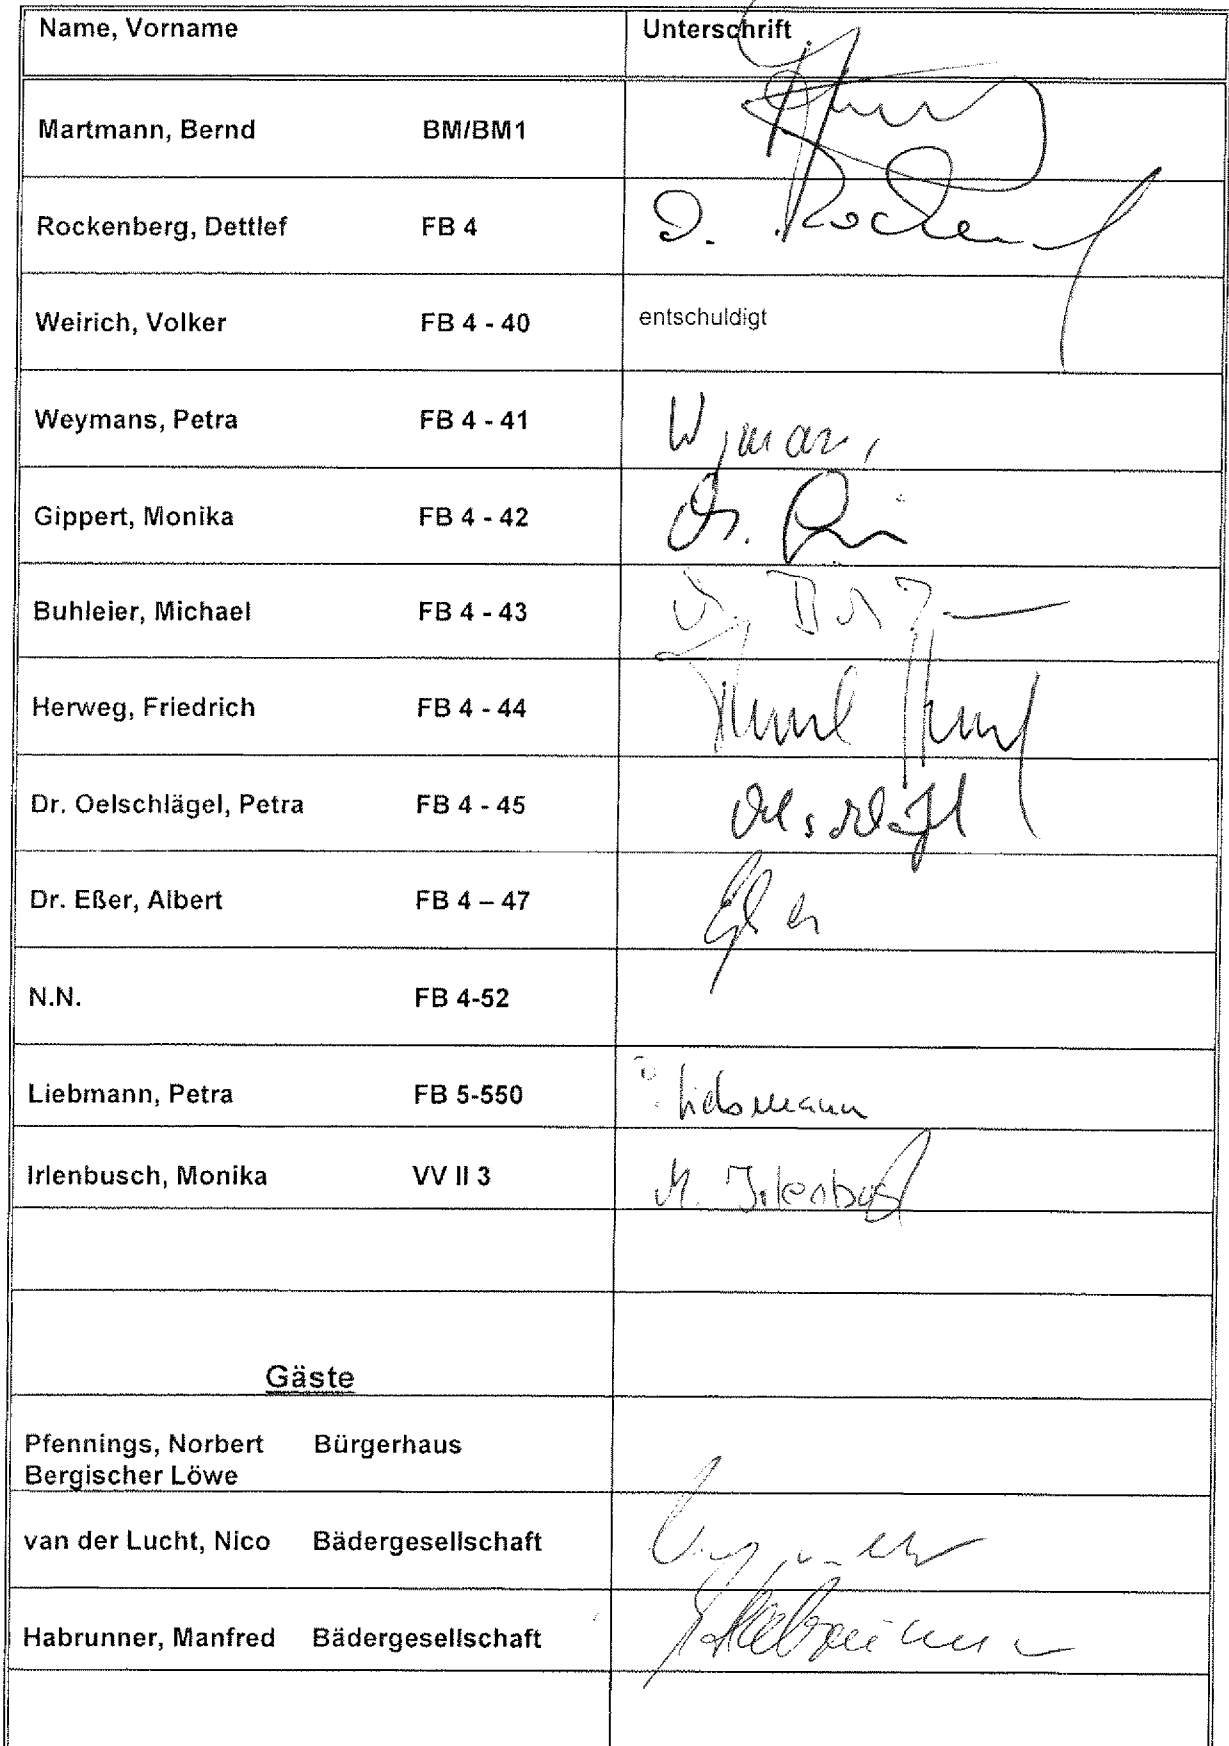 Name, Vorname Unterschrift
Martmann, Bernd BM/BM1
Rockenberg, Dettlef FB 4 D.
Weirich, Volker FB 4 - 40 entschuldigt
Weymans, Petra FB 4 - 41
Gippert, Monika FB 4 - 42
Buhleier, Michael FB 4 - 43
Herweg, Friedrich FB 4 - 44
Dr. Oelschlägel, Petra FB 4 - 45
Dr. Eßer, Albert FB 4 – 47
N.N. FB 4-52
Liebmann, Petra FB 5-550
Irlenbusch, Monika VV II 3 M.
Gäste
Pfennings, Norbert Bürgerhaus
Bergischer Löwe
van der Lucht, Nico Bädergesellschaft
Habrunner, Manfred Bädergesellschaft